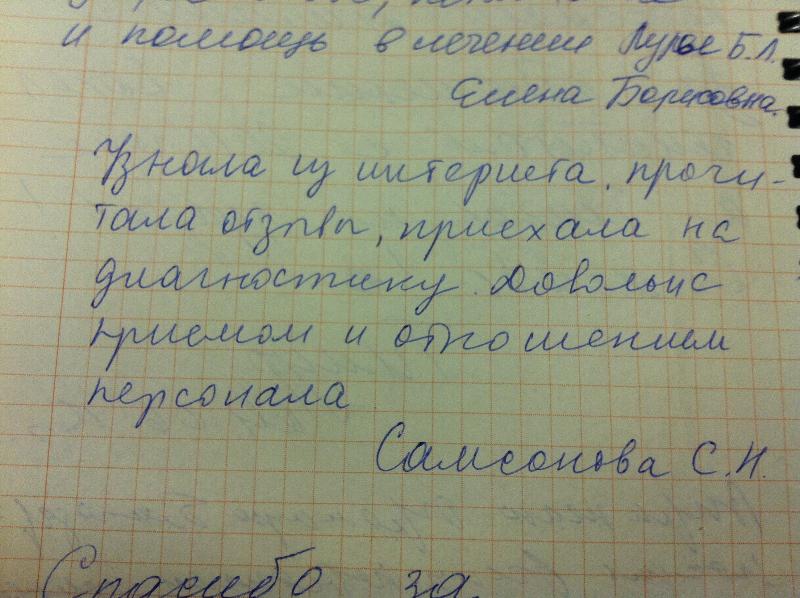 и помощь в лечении Лурье Б.Л.
Елена Борисовна.
Узнала из интернета, прочи-
тала отзывы, приехала на
диагностику. Довольна
приемом и отношением
персонала
Самсонова С.Н.
Спасибо за